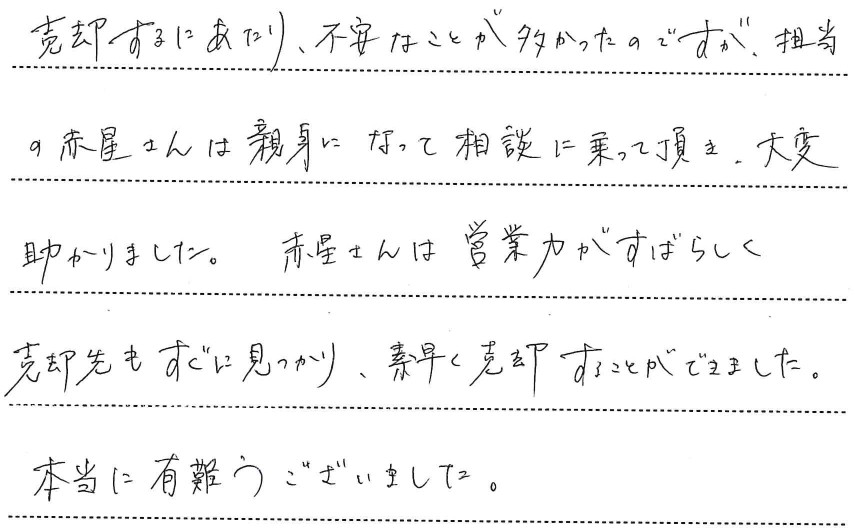 売却するにあたり、不安なことが多かったのですが、担当
の赤星さんは親身になって相談に乗って頂き、大変
助かりました。 赤星さんは営業力がすばらしく
売却先もすぐに見つかり、素早く売却することができました。
本当に有難うございました。